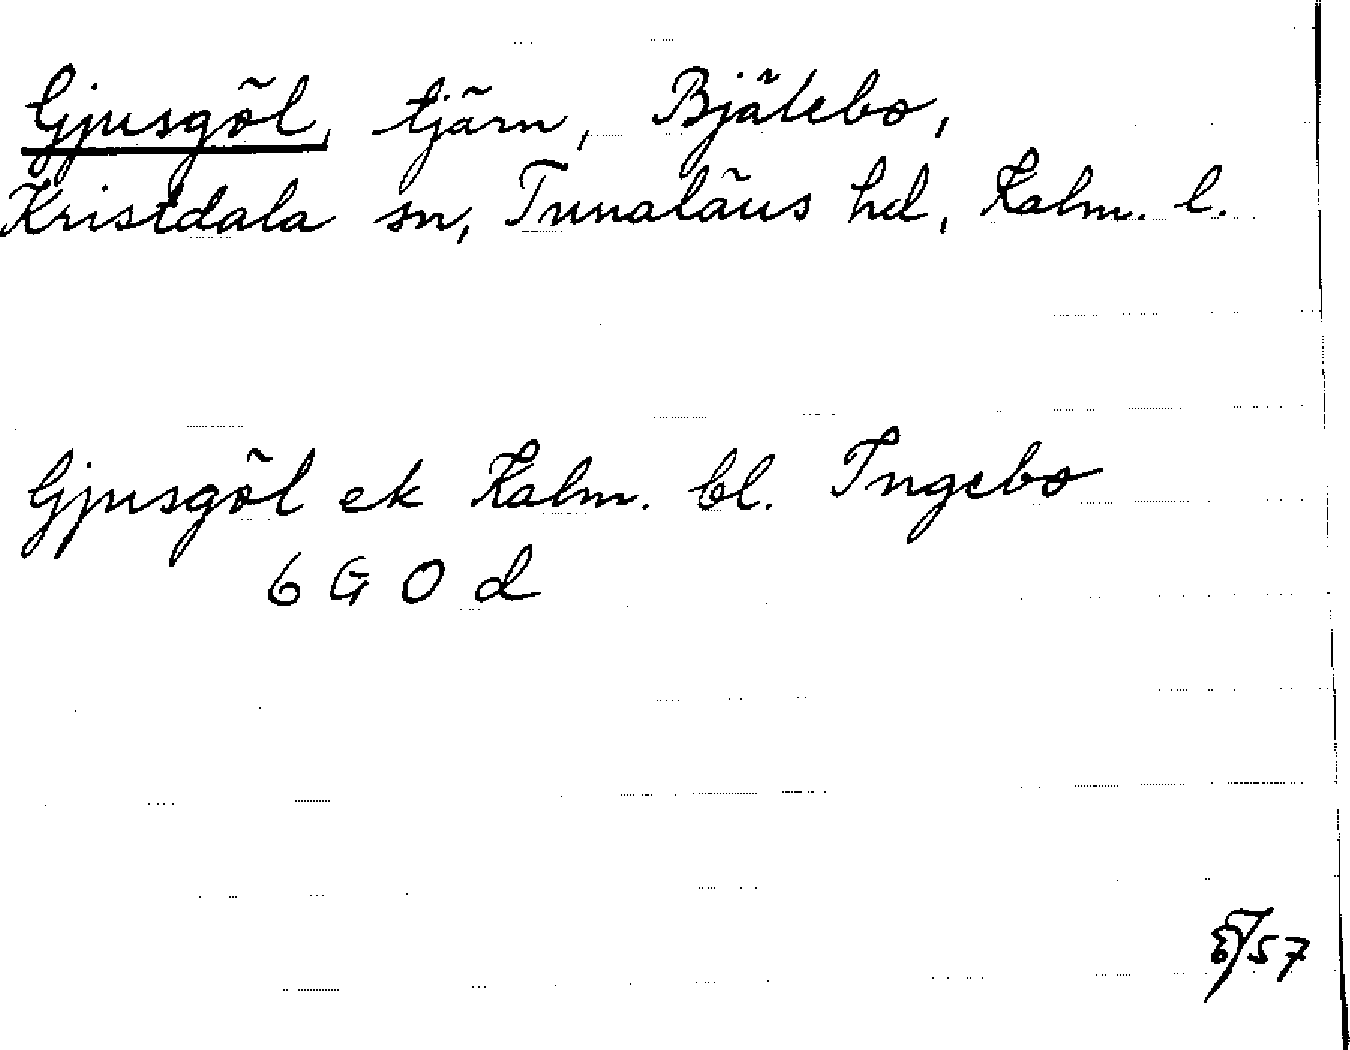 Gjusgöl, tjärn, Bjälebo,
Kristdala sn, Tunaläns hd, Kalm. l.
Gjusgöl ek Kalm. bl. Ingebo
6 G O d
/57